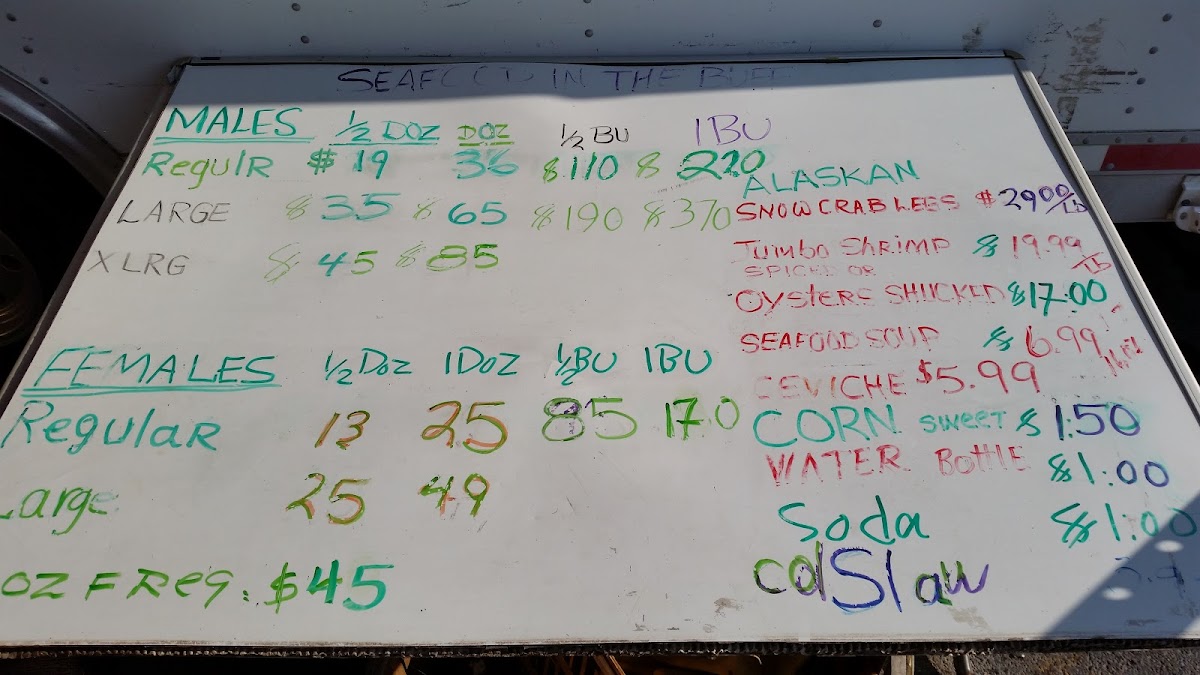 SEAFOOD IN THE BUFF
MALES ½ DOZ DOZ ½ BU 1BU
RegulR $ 19 36 $110 $ 220
LARGE $ 35 $ 65 $190 $370
XLRG $ 45 $ 85
FEMALES ½ Doz 1Doz ½BU 1BU
Regular 13 25 85 170
Large 25 49
OZ F Reg. : $45
ALASKAN
SNOW CRAB LEGS $2900/LB
Jumbo Shrimp $ 19.99/LB
SPICED OR
OYSTERS SHUCKED $17.00
SEAFOOD SOUP $ 6.99
CEVICHE $5.99
CORN SWEET $ 1.50
WATER BOTTLE $1.00
Soda $1.00
colSlaw